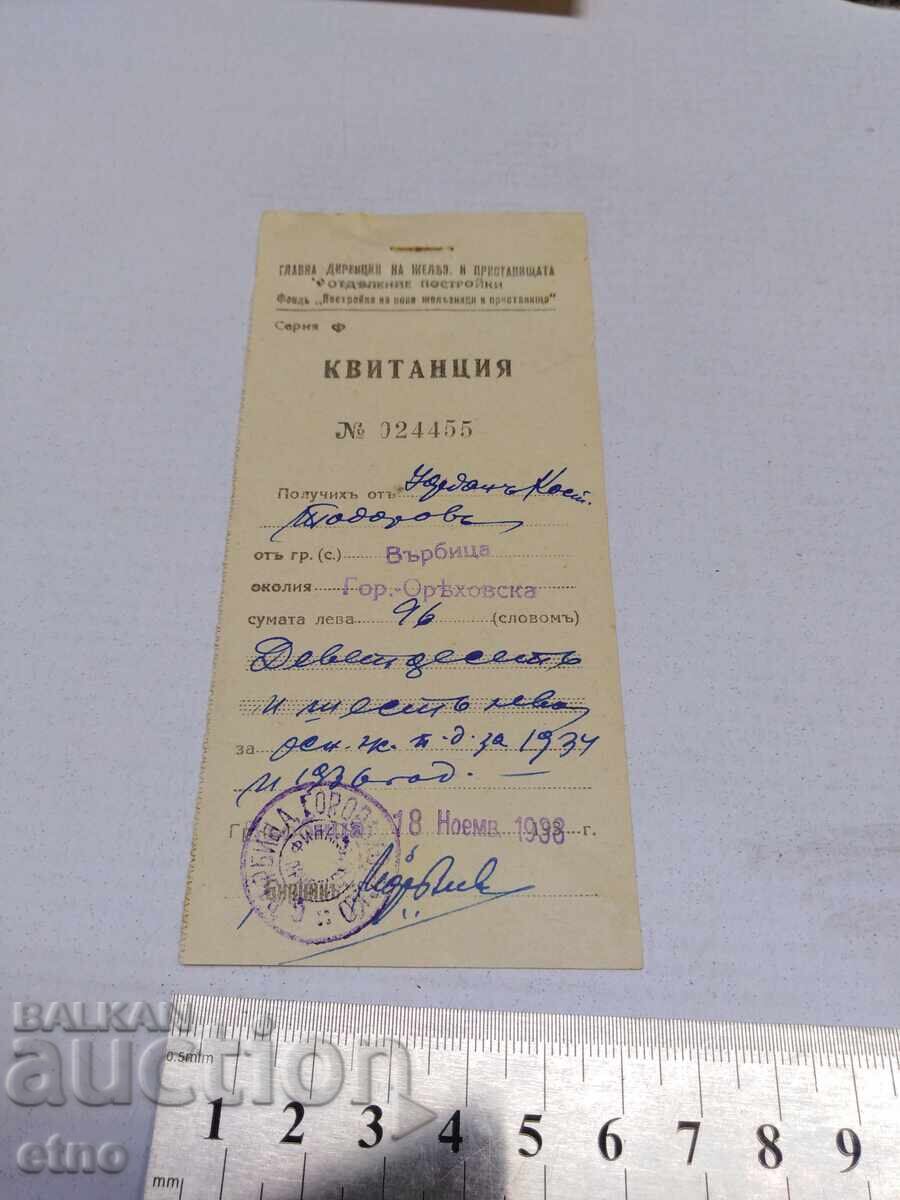 ГЛАВНА ДИРЕКЦИЯ НА ЖЕЛѢЗ. И ПРИСТАНИЩАТА
ОТДѢЛЕНИЕ ПОСТРОЙКИ
Фондъ „Постройка на нови желѣзници и пристанища"
Серия Ф
КВИТАНЦИЯ
№ 024455
Получихъ отъ Йорданъ Кост.
Тодоровъ
отъ гр. (с.) Върбица
околия Гор.-Орѣховска
сумата лева 96 (словомъ)
Деветдесетъ
и шесть лева
за осн. ж. п. д. за 1934
и 1936 год.
18 Ноемв. 1938 193 г.
Бирникъ:
BALKAN
auction
etno
0.5mm
1 2 3 4 5 6 7 8 9
mm